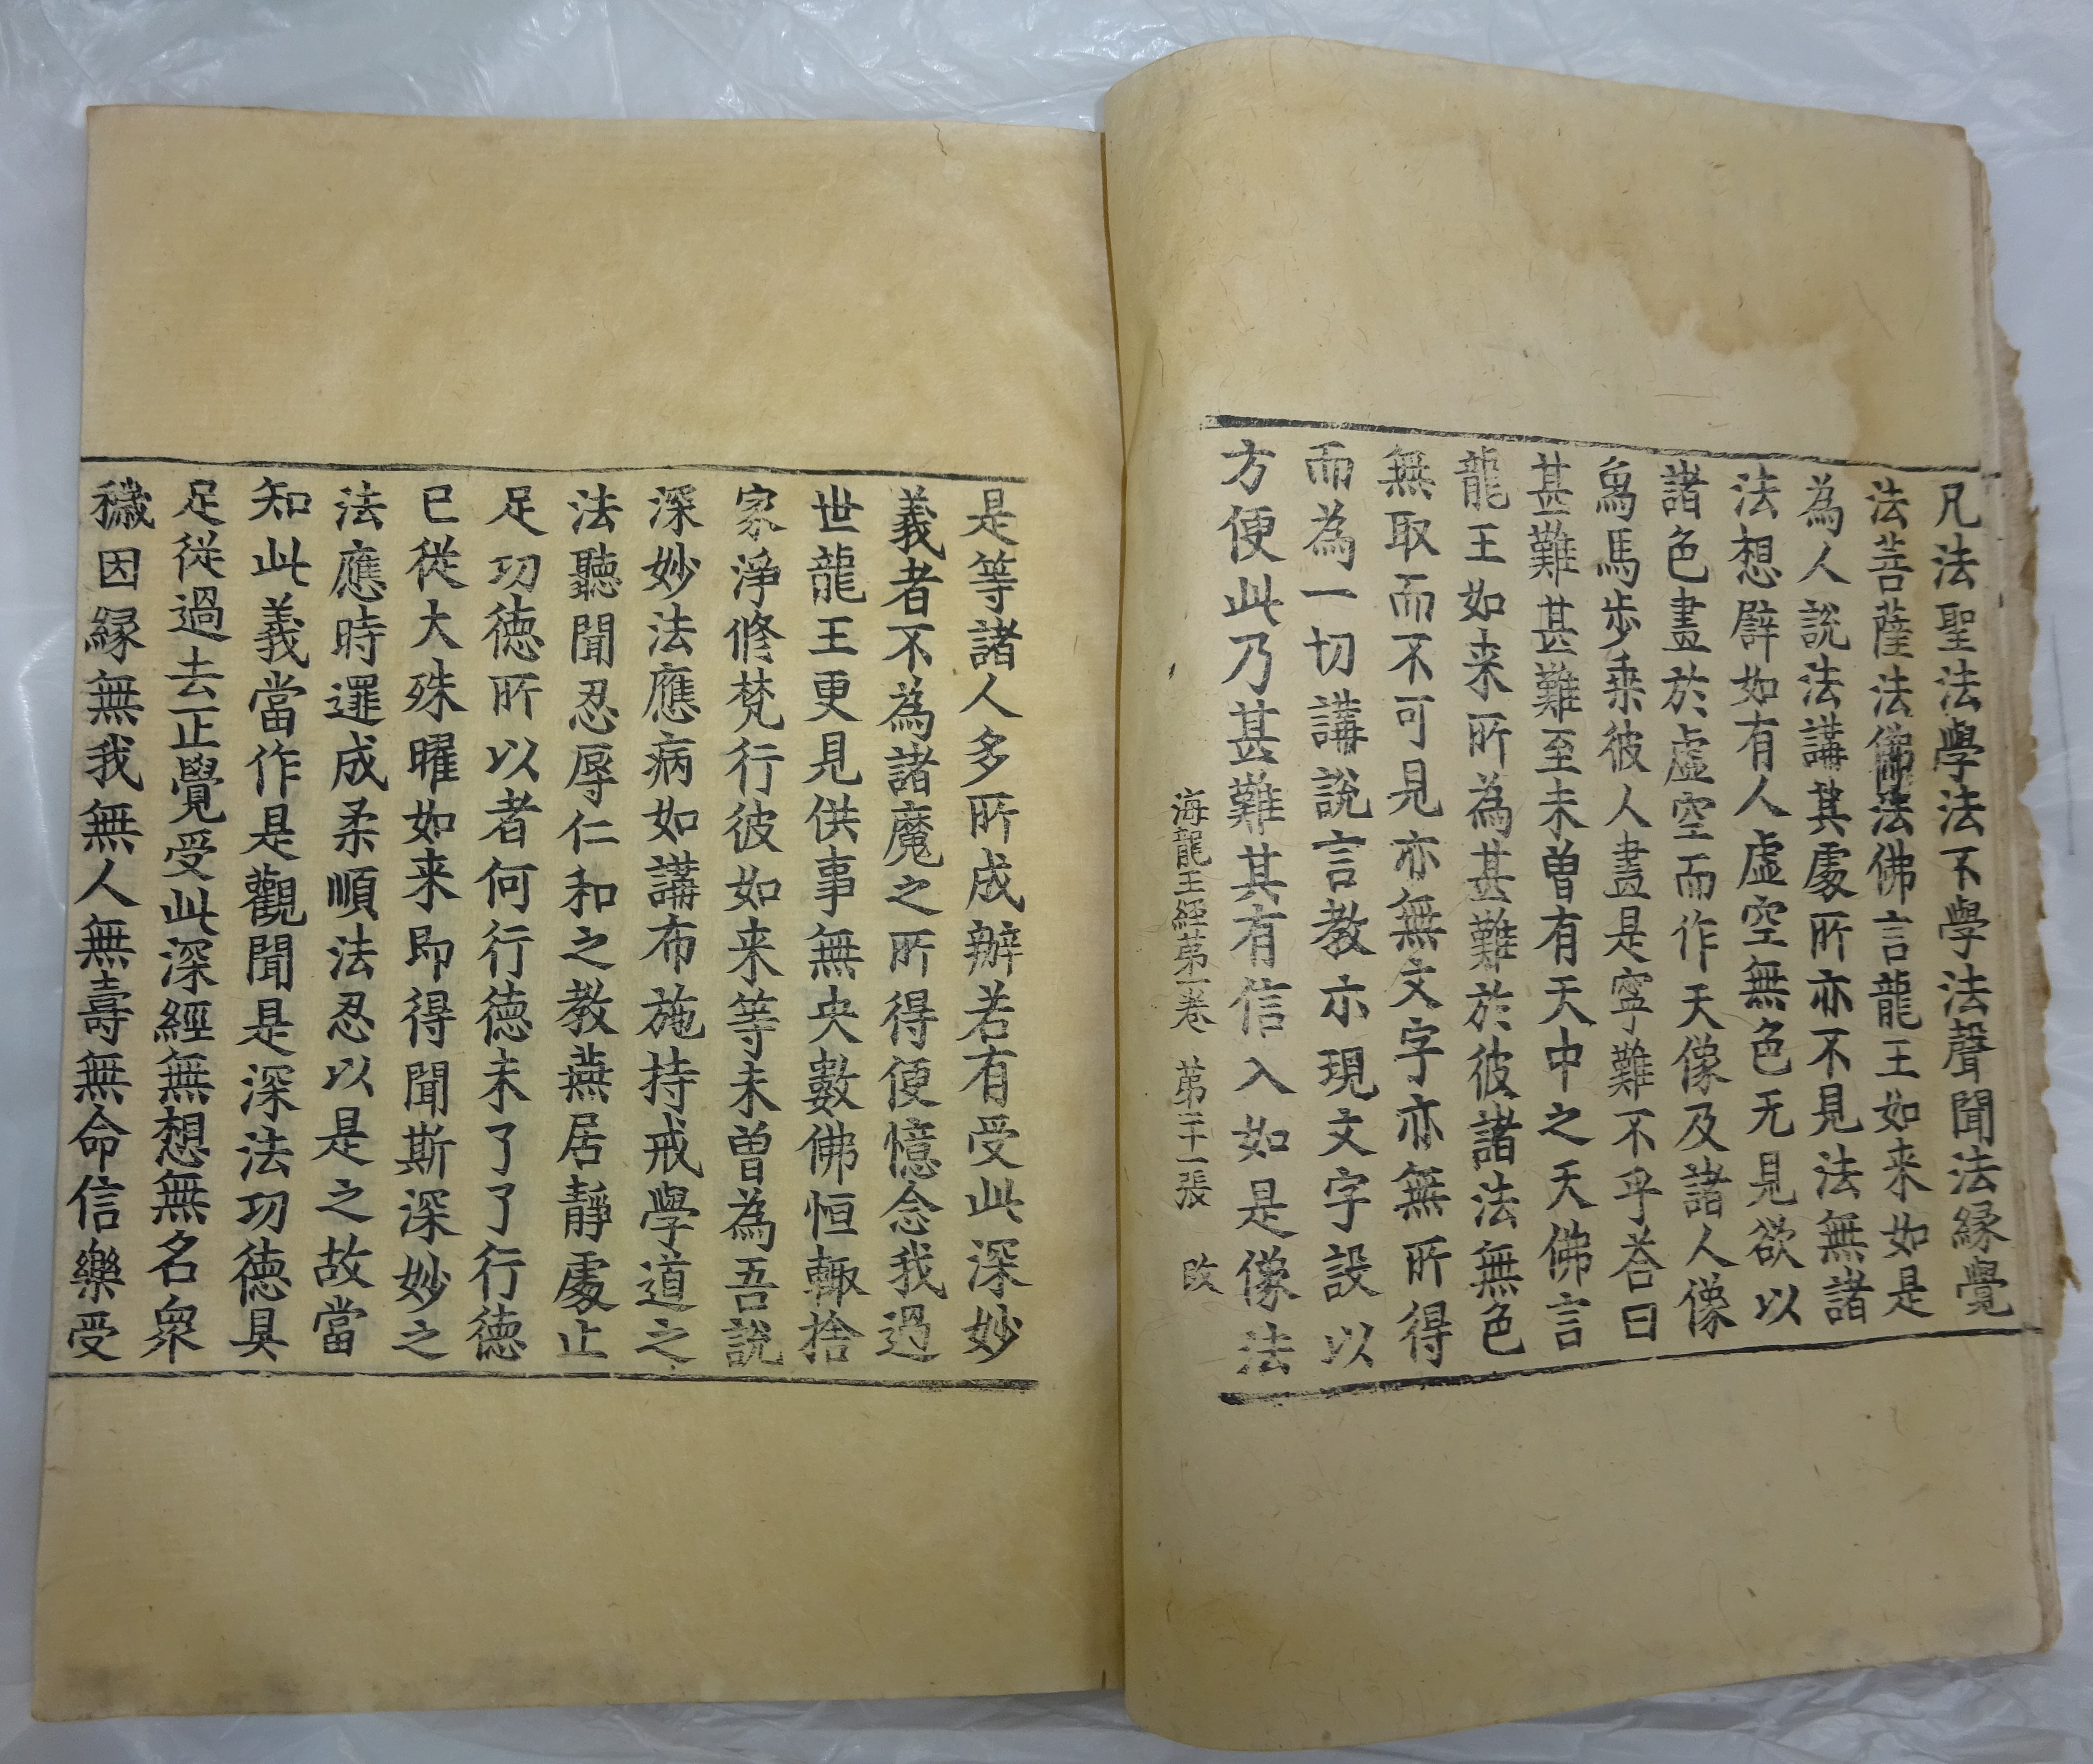 凡法聖法學法不學法聲聞法縁覺
法菩薩法佛法佛言龍王如来如是
為人說法講其處所亦不見法無諸
法想譬如有人虛空無色无見欲以
諸色畫於虛空而作天像及諸人像
爲馬歩乗彼人畫是寧難不乎荅曰
甚難甚難至未曽有天中之天佛言
龍王如来所為甚難於彼諸法無色
無取而不可見亦無文字亦無所得
而為一切講說言教示現文字設以
方便此乃甚難其有信入如是像法
海龍王經第一卷 第二十一張 改
是等諸人多所成辦若有受此深妙
義者不為諸魔之所得便憶念我過
世龍王更見供事無央數佛恒輙捨
家淨修梵行彼如来等未曽為吾說
深妙法應病如講布施持戒學道之
法聽聞忍辱仁和之教燕居靜處止
足功徳所以者何行徳未了了行徳
已從大殊曜如来即得聞斯深妙之
法應時還成柔順法忍以是之故當
知此義當作是觀聞是深法功徳具
足從過去正覺受此深經無想無名衆
穢因縁無我無人無壽無命信樂受